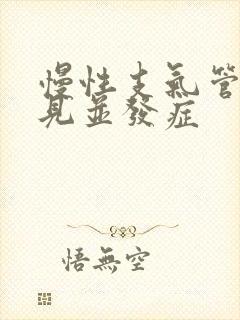 慢性支氣管
見並發症
悟無空